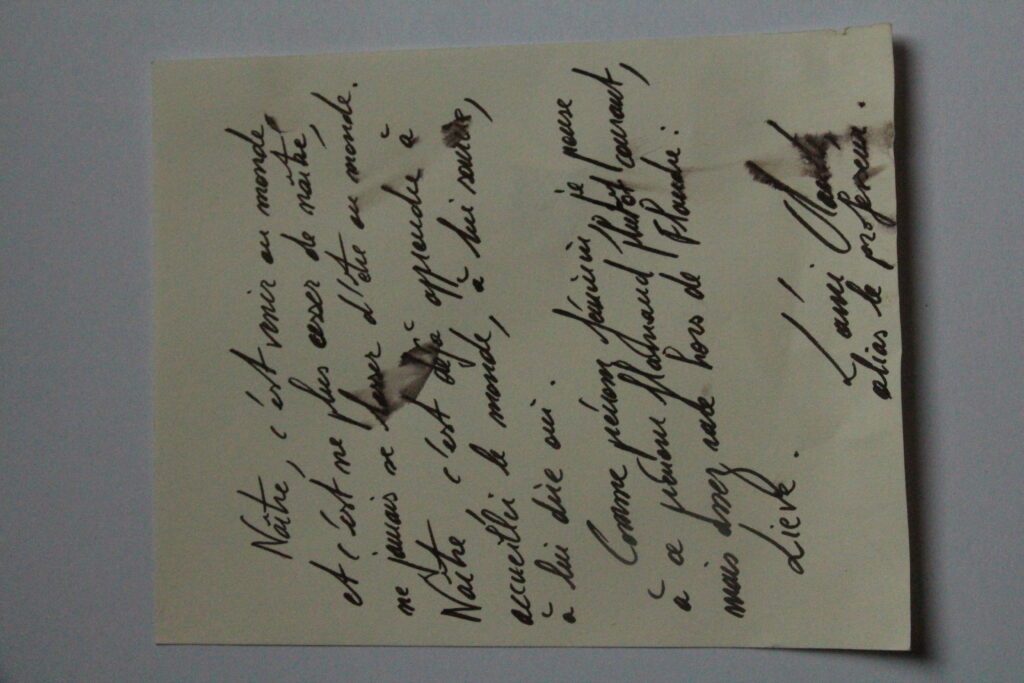 Naître, c'est venir au monde,
et c'est ne plus cesser de naître,
ne jamais se lasser d'être au monde.
Naître c'est déjà apprendre à
accueillir le monde, à lui sourire,
à lui dire oui.
Comme prénom féminin je pense
à ce prénom flamand plutôt courant,
mais assez rare hors de Flandre :
Lieve.
L'ami
alias le professeur.